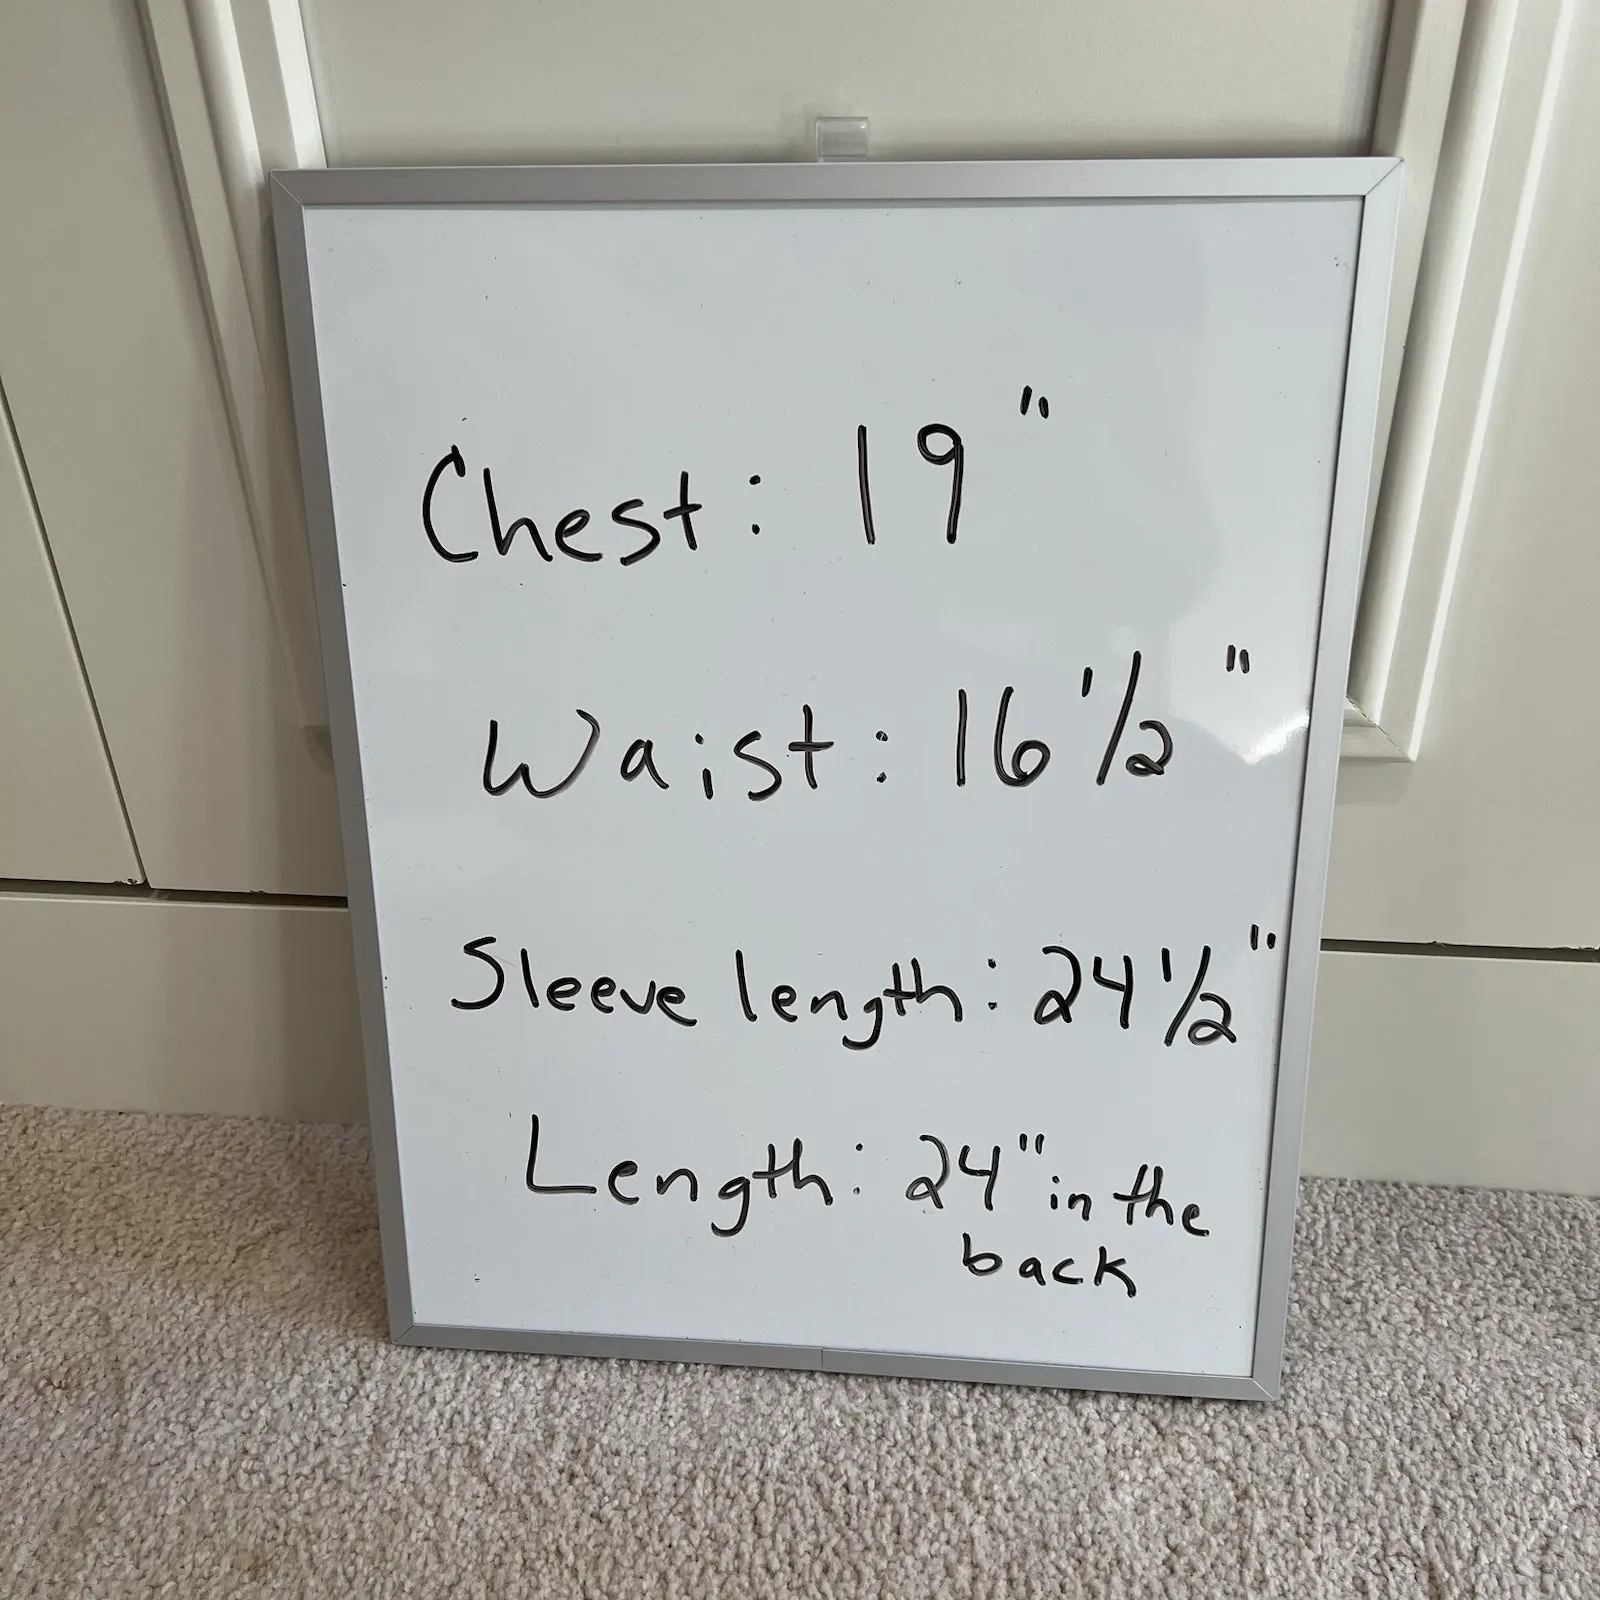 Chest: 19"
Waist: 16 1/2"
Sleeve length: 24 1/2"
Length: 24" in the
back